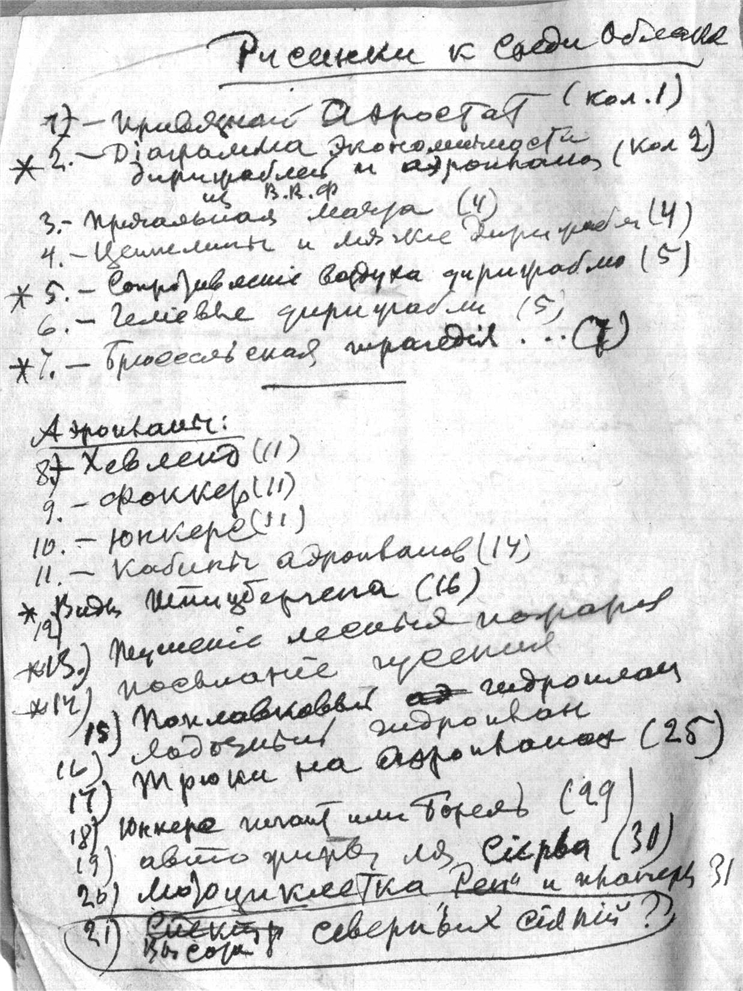 Рисунки к среди Облака
1) – привязной Аэростат (кол. 1)
* 2. – Діаграмма экономичности
дирижаблей и аэроплана (кол 2)
из В.В.Ф
3. – Причальная мачта (4)
4. – Цеппелины и мягкіе дирижабли (4)
* 5. – Сопротивленіе воздуха дирижаблю (5)
6. – Геліевые дирижабли (5)
* 7. – Брюссельская трагедія ... (7)
Аэропланы:
8) – Хевленд (11)
9. – Фоккер (11)
10. – Юнкерс (11)
11. – Кабины аэропланов (14)
* Виды Шпицбергена (16)
12)
*13.) Тушеніе лесных пожаров
*14)
15) Поплавковый гидроплан
16) Лодочный гидроплан
17) Трюки на Аэропланах (25)
18) Юнкерс или Борель (29)
19) автожир Сіерва (30)
20) Мотоциклетка "Реп" и 31
21) северных сіяній?
Высота